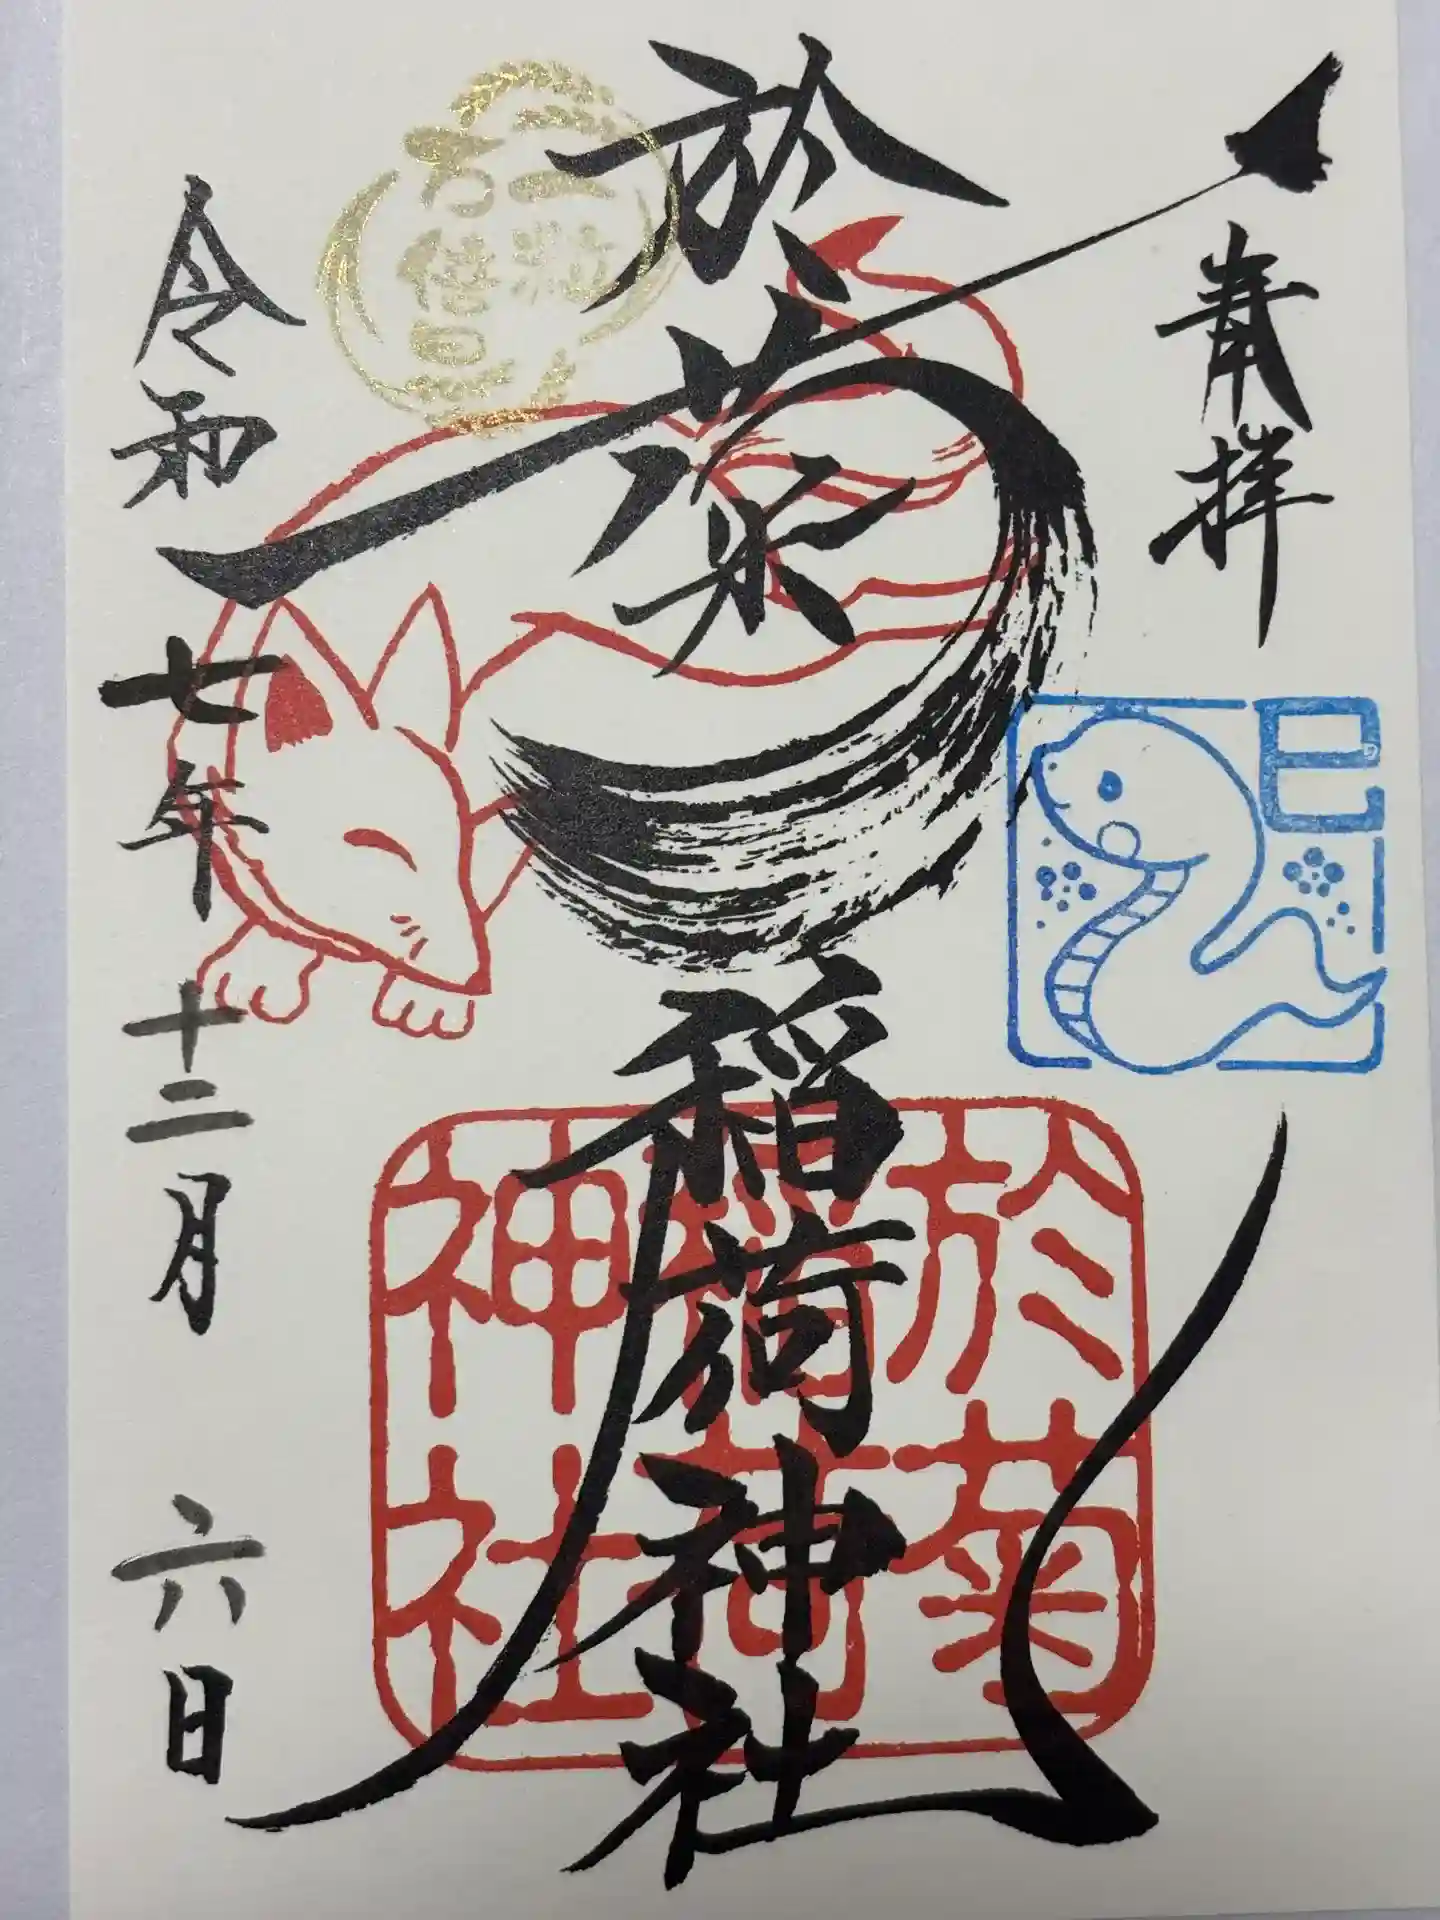 奉拝
巳
於菊稲荷神社
一粒
万倍
日
於菊
稲荷
神社
令和七年十二月六日